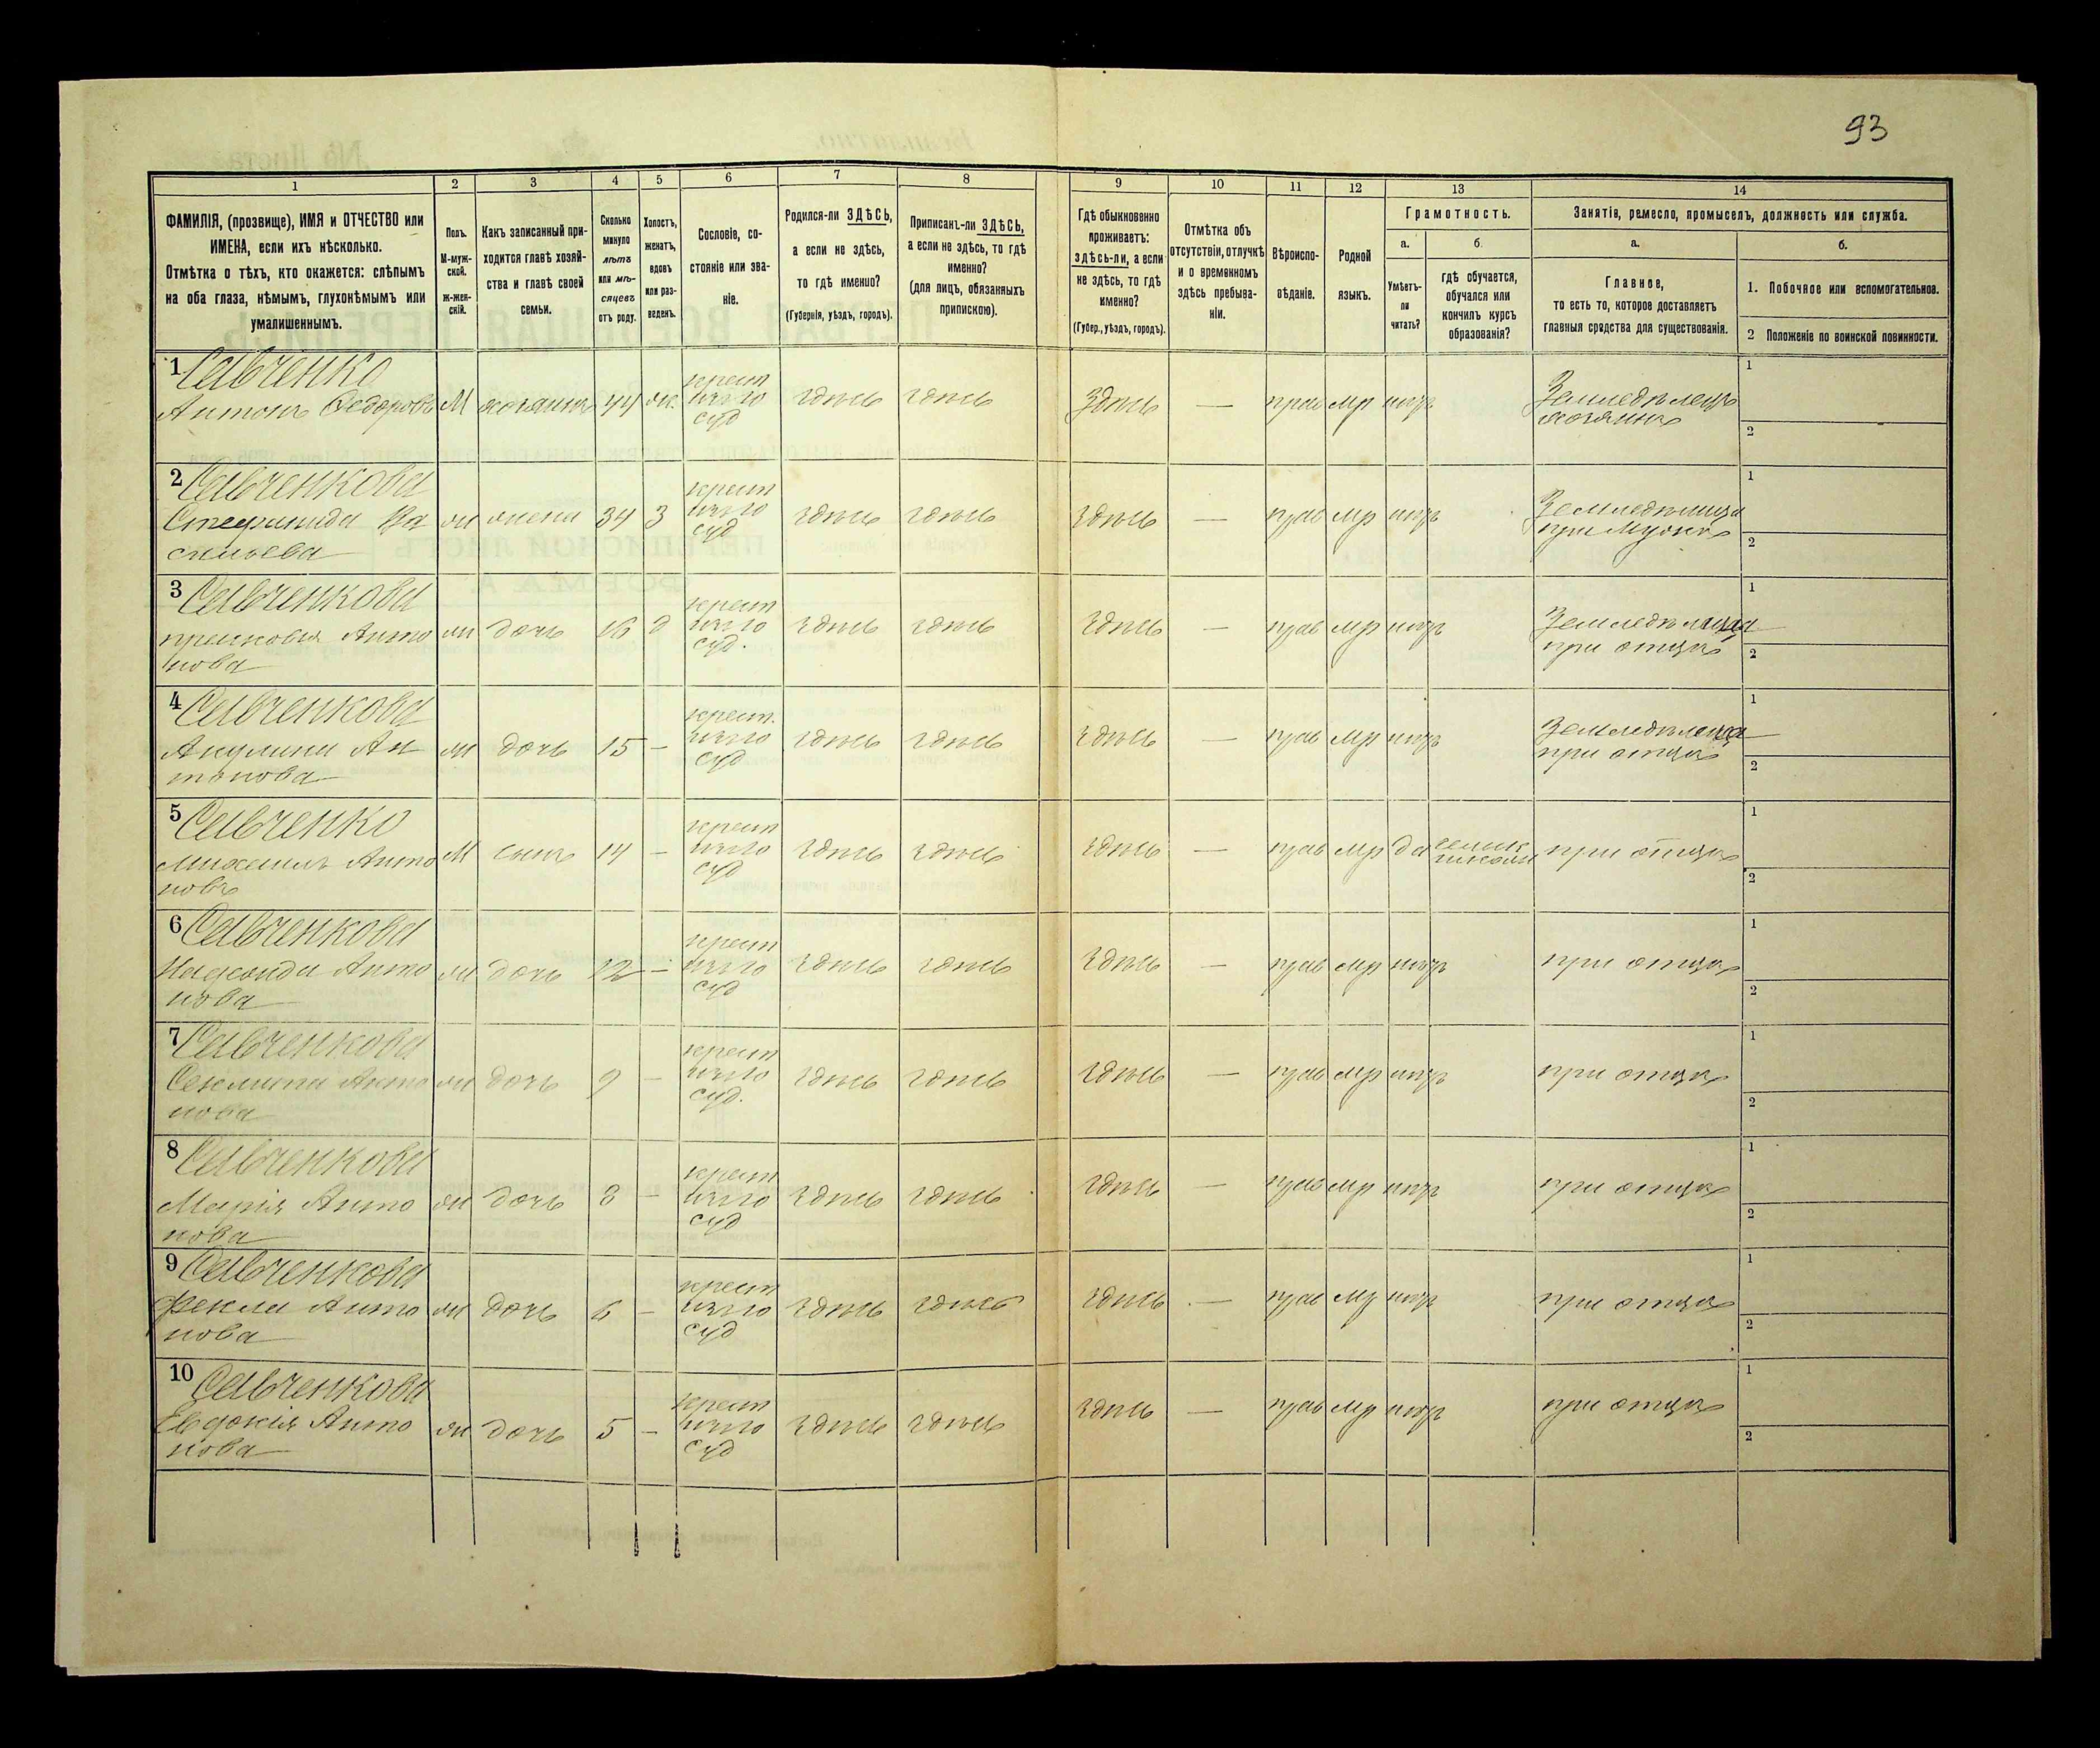 93
1 2 3 4 5 6 7 8 9 10 11 12 13 14
ФАМИЛІЯ, (прозвище), ИМЯ и ОТЧЕСТВО или
ИМЕНА, если ихъ нѣсколько.
Отмѣтка о тѣхъ, кто окажется: слѣпымъ
на оба глаза, нѣмымъ, глухонѣмымъ или
умалишеннымъ.
Полъ.
М-муж-
ской.
ж-жен-
скій.
Какъ записанный при-
ходится главѣ хозяй-
ства и главѣ своей
семьи.
Сколько
минуло
лѣтъ
или мѣ-
сяцевъ
отъ роду.
Холостъ,
женатъ,
вдовъ
или раз-
веденъ.
Сословіе, со-
стояніе или зва-
ніе.
Родился-ли ЗДѢСЬ,
а если не здѣсь,
то гдѣ именно?
(Губернія, уѣздъ, городъ).
Приписанъ-ли ЗДѢСЬ,
а если не здѣсь, то гдѣ
именно?
(для лицъ, обязанныхъ
припискою).
Гдѣ обыкновенно
проживаетъ:
здѣсь-ли, а если
не здѣсь, то гдѣ
именно?
(Губер., уѣздъ, городъ).
Отмѣтка объ
отсутствіи, отлучкѣ
и о временномъ
здѣсь пребыва-
ніи.
Вѣроиспо-
вѣданіе.
Родной
языкъ.
Грамотность.
а.
Умѣетъ-
ли
читать?
б.
гдѣ обучается,
обучался или
кончилъ курсъ
образованія?
Занятія, ремесло, промыселъ, должность или служба.
а.
Главное,
то есть то, которое доставляетъ
главныя средства для существованія.
б.
1. Побочное или вспомогательное.
2 Положеніе по воинской повинности.
1 Савченко
Антонъ Федоровъ М хозяинъ 44 ж. крест здѣсь здѣсь Здѣсь — прав мр Земледѣлецъ 1
суд хозяинъ 2
2 Савченкова
Стефанида Ва жена 34 З крест здѣсь здѣсь здѣсь — прав мр Земледѣлица 1
сильева суд при мужѣ 2
3 Савченкова
Антo дочь 16 д крест здѣсь здѣсь здѣсь — прав мр Земледѣлица 1
нова суд. при отцѣ 2
4 Савченкова
Акулина Ан дочь 15 — крест. здѣсь здѣсь здѣсь — прав мр Земледѣлица 1
тонова суд при отцѣ 2
5 Савченко
Михаилъ Анто М сынъ 14 — крест здѣсь здѣсь здѣсь — прав мр да школи при отцѣ 1
новъ суд 2
6 Савченкова
Анто дочь 12 — крест здѣсь здѣсь здѣсь — прав мр при отцѣ 1
нова суд 2
7 Савченкова
Анто дочь 9 — крест здѣсь здѣсь здѣсь — прав мр при отцѣ 1
нова суд. 2
8 Савченкова
Марія Анто дочь 8 — крест здѣсь здѣсь здѣсь — прав мр при отцѣ 1
нова суд 2
9 Савченкова
Фекла Анто дочь 6 — крест здѣсь здѣсь здѣсь — прав мр при отцѣ 1
нова суд 2
10 Савченкова
Евдокія Анто дочь 5 — крест здѣсь здѣсь здѣсь — прав мр при отцѣ 1
нова суд 2